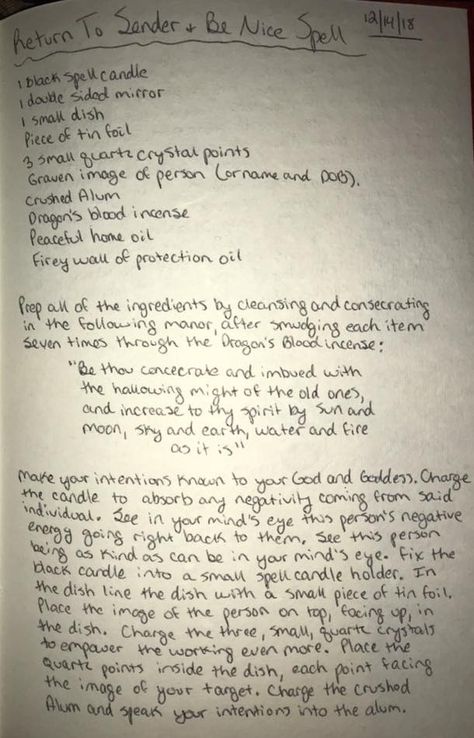 Return To Sender + Be Nice Spell
12/14/18
1 black spell candle
1 double sided mirror
1 small dish
Piece of tin foil
3 small quartz crystal points
Graven image of person (or name and DOB).
Crushed Alum
Dragon's blood incense
Peaceful home oil
Firey wall of protection oil
Prep all of the ingredients by cleansing and consecrating
in the following manor, after smudging each item
seven times through the Dragon's Blood incense:
"Be thou concecrate and imbued with
the hallowing might of the old ones,
and increase to thy spirit by sun and
moon, sky and earth, water and fire
as it is"
Make your intentions known to your God and Goddess. Charge
the candle to absorb any negativity coming from said
individual. See in your mind's eye this person's negative
energy going right back to them. See this person
being as kind as can be in your mind's eye. Fix the
black candle into a small spell candle holder. In
the dish line the dish with a small piece of tin foil.
Place the image of the person on top, facing up, in
the dish. Charge the three, small, quartz crystals
to empower the working even more. Place the
quartz points inside the dish, each point facing
the image of your target. Charge the crushed
Alum and speak your intentions into the alum.